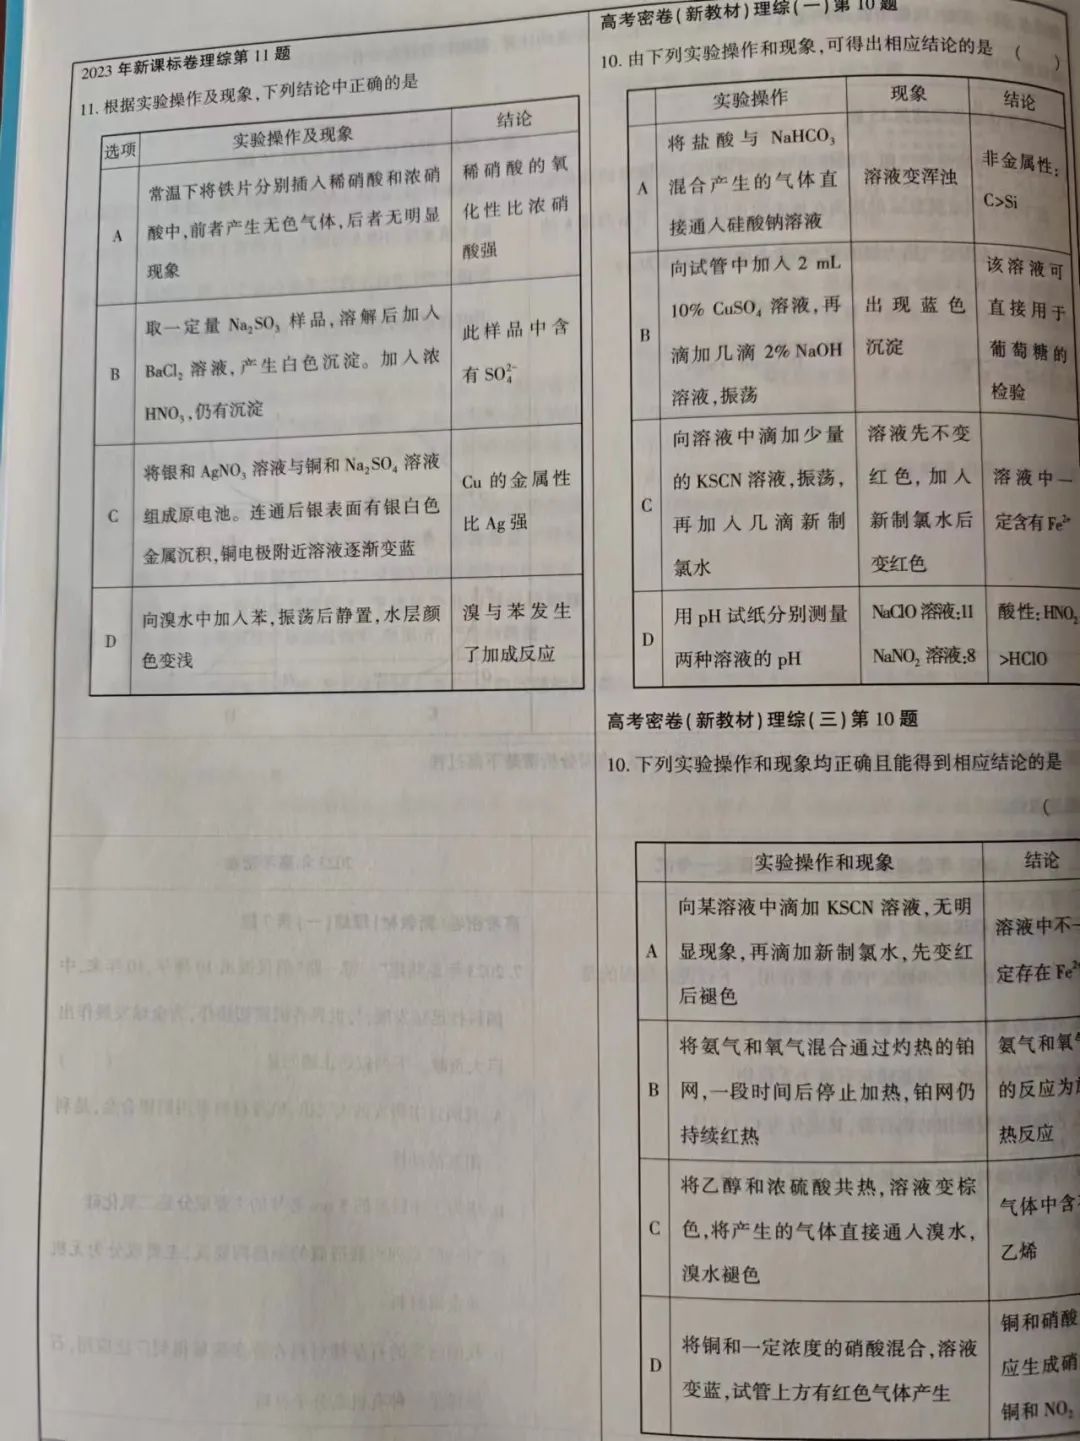 2023年新课标卷理综第11题
11. 根据实验操作及现象,下列结论中正确的是
选项
实验操作及现象
结论
A
常温下将铁片分别插入稀硝酸和浓硝
酸中,前者产生无色气体,后者无明显
现象
稀硝酸的氧
化性比浓硝
酸强
B
取一定量 Na₂SO₃ 样品,溶解后加入
BaCl₂ 溶液,产生白色沉淀。加入浓
HNO₃,仍有沉淀
此样品中含
有 SO₄²⁻
C
将银和 AgNO₃ 溶液与铜和 Na₂SO₄ 溶液
组成原电池。连通后银表面有银白色
金属沉积,铜电极附近溶液逐渐变蓝
Cu 的金属性
比 Ag 强
D
向溴水中加入苯,振荡后静置,水层颜
色变浅
溴与苯发生
了加成反应
高考密卷(新教材)理综(一)第10题
10. 由下列实验操作和现象,可得出相应结论的是 ( )
实验操作
现象
结论
A
将盐酸与 NaHCO₃
混合产生的气体直
接通入硅酸钠溶液
溶液变浑浊
非金属性:
C>Si
B
向试管中加入 2 mL
10% CuSO₄ 溶液,再
滴加几滴 2% NaOH
溶液,振荡
出现蓝色
沉淀
该溶液可
直接用于
葡萄糖的
检验
C
向溶液中滴加少量
的 KSCN 溶液,振荡,
再加入几滴新制
氯水
溶液先不变
红色,加入
新制氯水后
变红色
溶液中一
定含有 Fe²⁺
D
用 pH 试纸分别测量
两种溶液的 pH
NaClO 溶液:11
NaNO₂ 溶液:8
酸性:HNO₂
>HClO
高考密卷(新教材)理综(三)第10题
10. 下列实验操作和现象均正确且能得到相应结论的是
(
实验操作和现象
结论
A
向某溶液中滴加 KSCN 溶液,无明
显现象,再滴加新制氯水,先变红
后褪色
溶液中不一
定存在 Fe²
B
将氨气和氧气混合通过灼热的铂
网,一段时间后停止加热,铂网仍
持续红热
氨气和氧
的反应为
热反应
C
将乙醇和浓硫酸共热,溶液变棕
色,将产生的气体直接通入溴水,
溴水褪色
气体中含
乙烯
D
将铜和一定浓度的硝酸混合,溶液
变蓝,试管上方有红色气体产生
铜和硝酸
应生成硝
铜和 NO₂